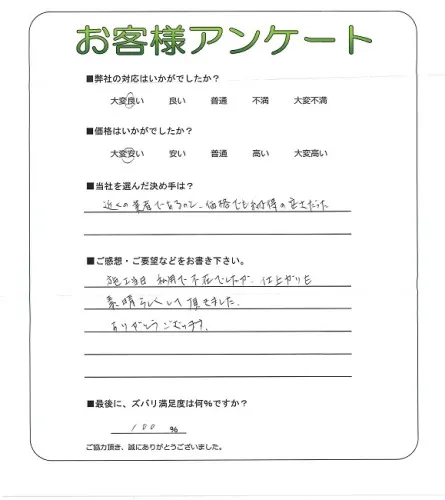 お客様アンケート
■弊社の対応はいかがでしたか？
大変良い 良い 普通 不満 大変不満
■価格はいかがでしたか？
大変安い 安い 普通 高い 大変高い
■当社を選んだ決め手は？
近くの業者であるのと、価格でも納得の定土だった
■ご感想・ご要望などをお書き下さい。
施工当日 私用で不在でしたが、仕上がりも
素晴らしくして頂きました。
ありがとうございます。
■最後に、ズバリ満足度は何％ですか？
100 %
ご協力頂き、誠にありがとうございました。